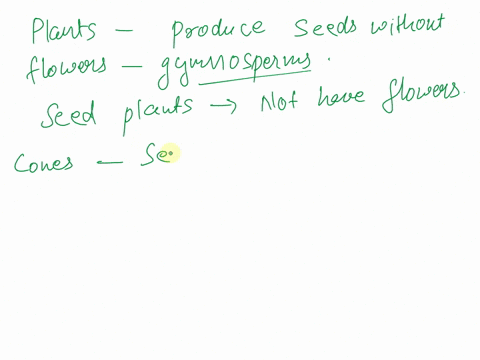 Plants — produce seeds without
flowers — gymnosperms.
Seed plants → Not have flowers.
Cones — Se